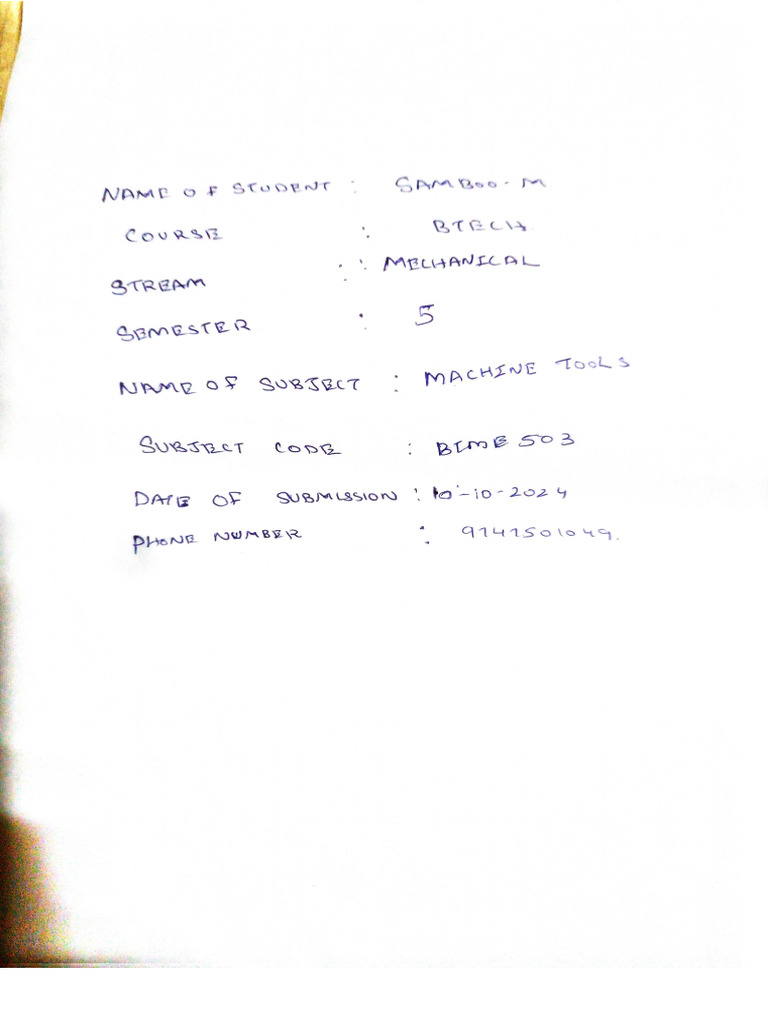 NAME OF STUDENT : SAMBOO-M
COURSE : BTECH
STREAM : MECHANICAL
SEMESTER : 5
NAME OF SUBJECT : MACHINE TOOLS
SUBJECT CODE : BIME 503
DATE OF SUBMISSION : 10-10-2024
PHONE NUMBER : 9141501049.